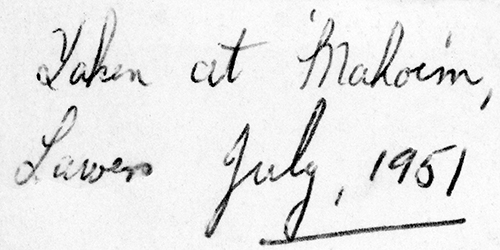 Taken at 'Mahoim,
Lawers July, 1951